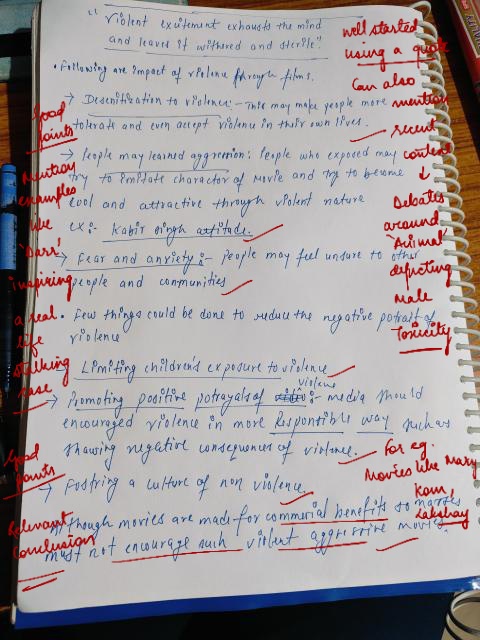 "Violent excitement exhausts the mind
and leaves it withered and sterile".
well started
using a quote
• Following are impact of violence through films.
Can also
mention
recent
content
↓
Debates
around
'Animal'
depicting
male
toxicity
→ Desensitization to violence:- This may make people more
tolerate and even accept violence in their own lives.
Good
points
→ People may learned aggression: People who exposed may
try to imitate charactor of movie and try to become
cool and attractive through violent nature
ex:- Kabir singh attitude.
Mention
examples
like
'Darr'
inspiring
a real
life
stalking
case
→ Fear and anxiety:- People may feel unsure to other
people and communities
• Few things could be done to reduce the negative potrait of
violence
→ Limiting children's exposure to violence
→ Promoting positive potrayals of violence :- media should
encouraged violence in more Responsible way such as
showing negative consequences of violence.
For eg.
Movies like Mary
Kom,
Lakshay
Good
points
→ Fostring a culture of non violence.
Although movies are made for commercial benefits so
must not encourage such violent aggressive movies.
Relevant
Conclusion